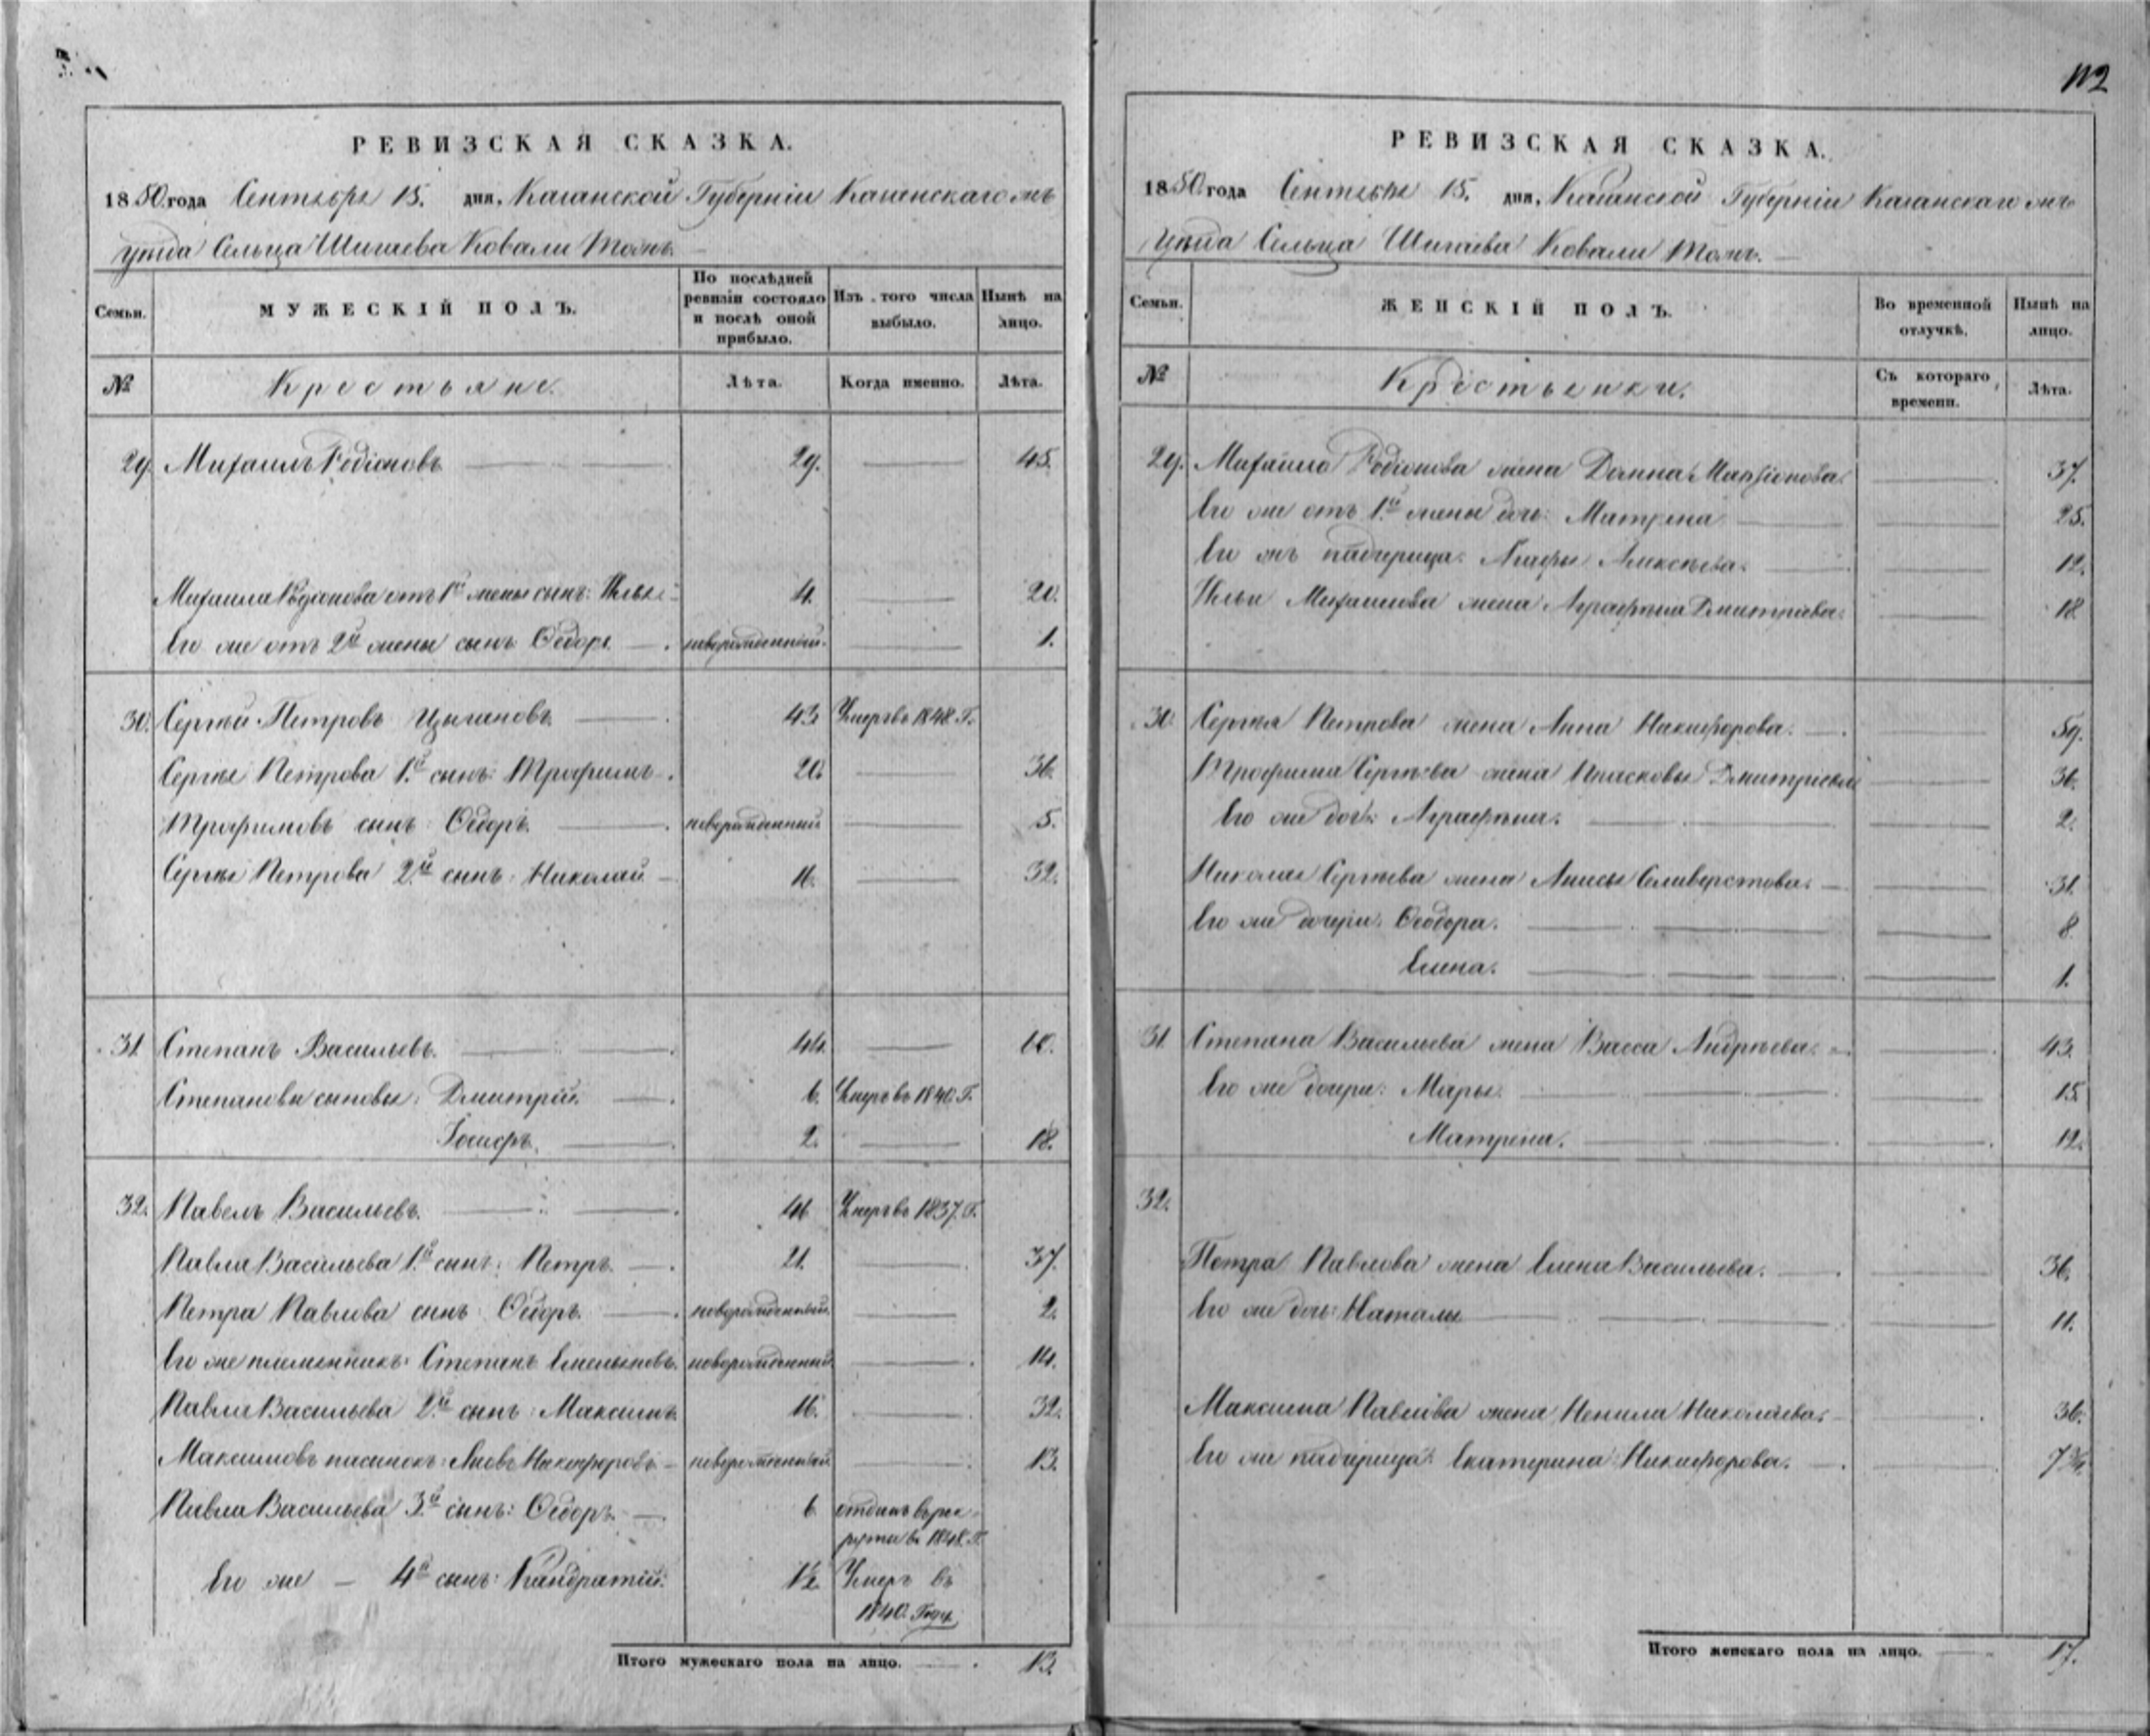 РЕВИЗСКАЯ СКАЗКА.
1850 года Сентября 15. дня, Казанской Губерніи Казанскаго
уѣзда Сельца Шигаева Ковали тожъ.
Семьи.
МУЖЕСКІЙ ПОЛЪ.
По послѣдней ревизіи состояло и послѣ оной прибыло.
Изъ того числа выбыло.
Нынѣ на лицо.
№
Крестьяне.
Лѣта.
Когда именно.
Лѣта.
29. Михаилъ Родіоновъ 29. 45.
Михаила Родіонова отъ 1й жены сынъ: Илья 4. 20.
Его же отъ 2й жены сынъ Ѳедоръ новорожденный. 1.
30. Сергѣй Петровъ Цыгановъ 43 Умеръ въ 1848. Г.
Сергѣя Петрова 1й сынъ: Трофимъ. 20. 36.
Трофимовъ сынъ: Ѳедоръ. новорожденный 5.
Сергѣя Петрова 2й сынъ: Николай 16. 32.
31. Степанъ Васильевъ. 44. 60.
Степановы сыновья: Дмитрій. 6. Умеръ въ 1840. Г.
Іосифъ. 2. 18.
32. Павелъ Васильевъ. 46 Умеръ въ 1837. Г.
Павла Васильева 1й сынъ: Петръ 21. 37.
Петра Павлова сынъ: Ѳедоръ. новорожденный. 2.
Его же племянникъ: Степанъ Емельяновъ. новорожденный 14.
Павла Васильева 2й сынъ: Максимъ 16. 32.
Максимовъ пасынокъ: Яковъ Никифоровъ новорожденный 13.
Павла Васильева 3й сынъ: Ѳедоръ. 6 отданъ въ рек-
руты въ 1848. Г.
Его же — 4й сынъ: Кандратій. 1½. Умеръ въ
1840. Году
Итого мужескаго пола на лицо. 13.
112
РЕВИЗСКАЯ СКАЗКА.
1850 года Сентября 15. дня, Казанской Губерніи Казанскаго
уѣзда Сельца Шигаева Ковали тожъ.
Семьи.
ЖЕНСКІЙ ПОЛЪ.
Во временной отлучкѣ.
Нынѣ на лицо.
№
Крестьянки.
Съ котораго времени.
Лѣта.
29. Михаила Родіонова жена Домна 37.
Его же отъ 1й жены дочь: Матрена 25.
падчерица: Алексѣева. 12.
Ильи Михайлова жена Аграфена Дмитріева. 18.
30. Сергѣя Петрова жена Анна Никифорова. 59.
Трофима Сергѣева жена Прасковья Дмитріева 36.
Его же дочь: Аграфена. 2.
Николая Сергѣева жена Анисья Селиверстова. 31.
Его же дочери: Ѳеодора. 8.
Елена. 1.
31. Степана Васильева жена Васса Андреева. 43.
Его же дочери: Марья. 15.
Матрена. 12.
32.
Петра Павлова жена Елена Васильева. 36.
Его же дочь: Наталья 11.
Максима Павлова жена Ненила Николаева. 36.
Его же падчерица: Екатерина Никифорова.
Итого женскаго пола на лицо. 17.